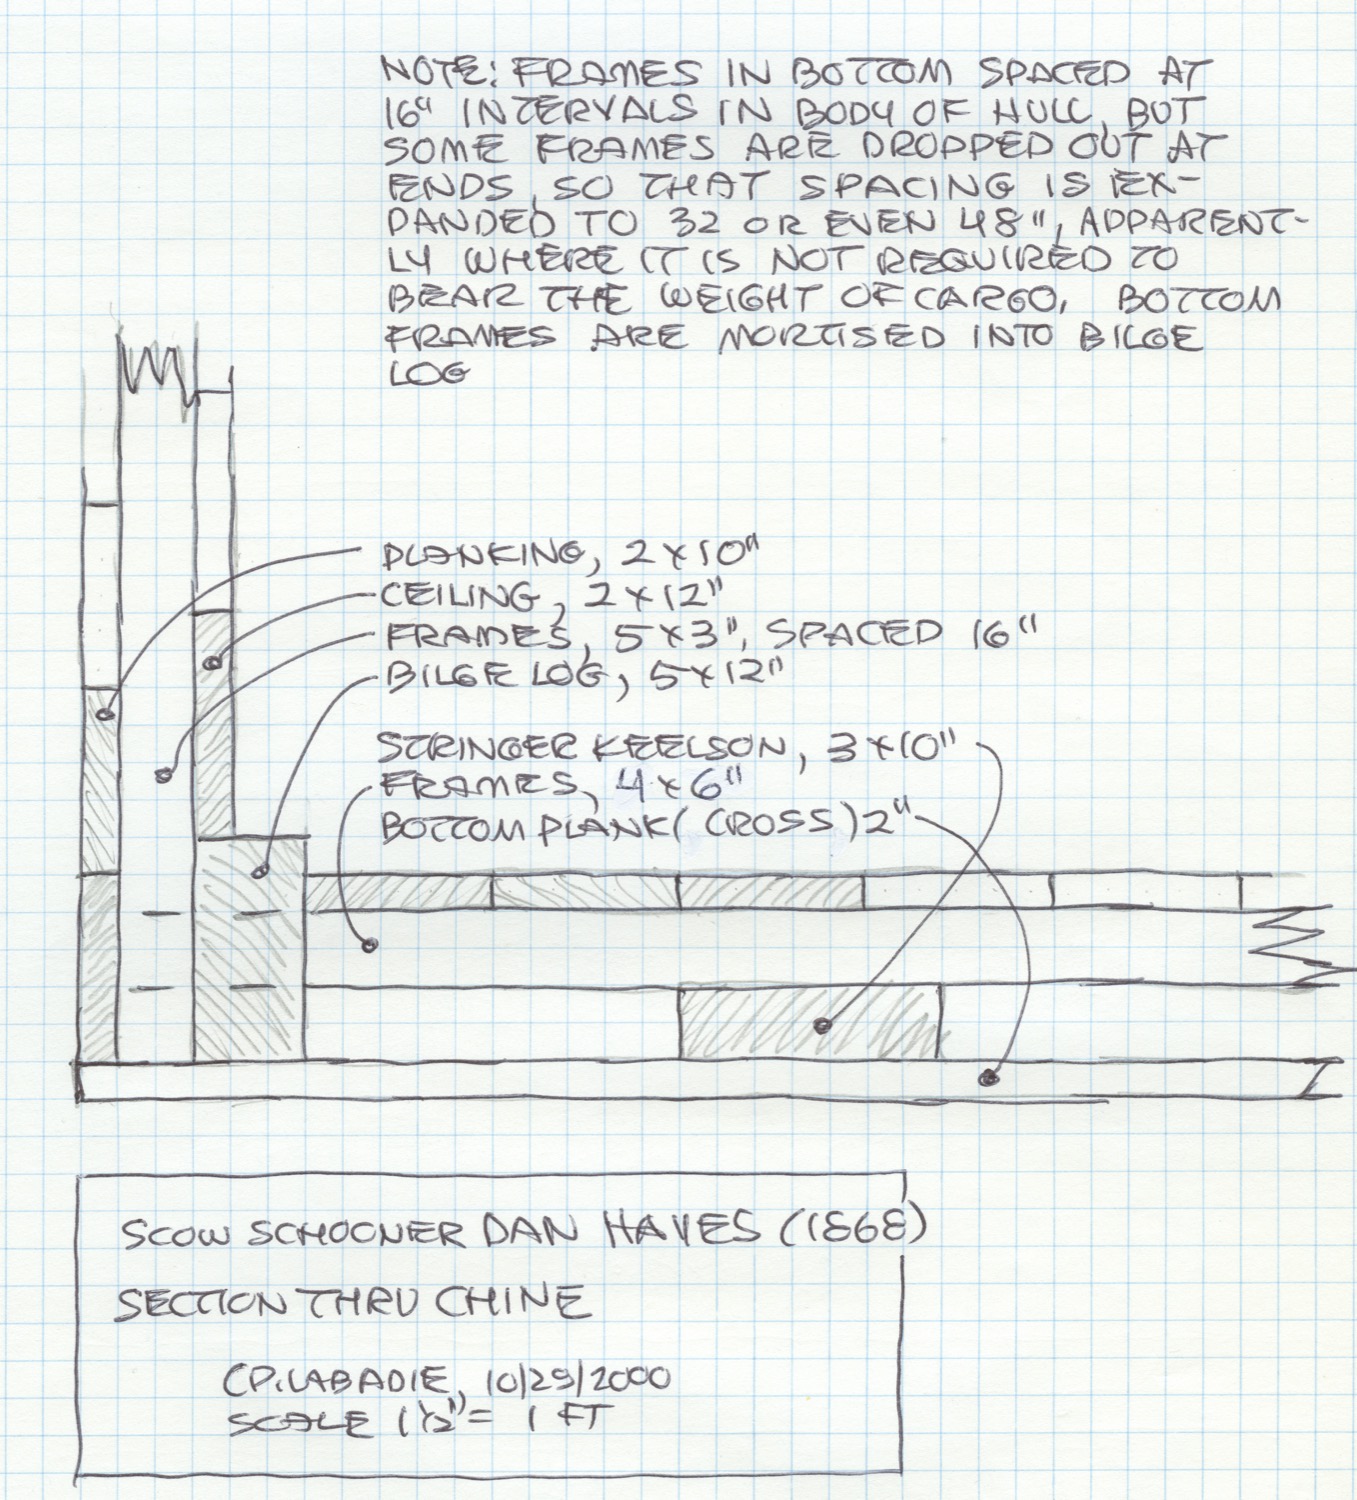 NOTE: FRAMES IN BOTTOM SPACED AT
16" INTERVALS IN BODY OF HULL, BUT
SOME FRAMES ARE DROPPED OUT AT
ENDS, SO THAT SPACING IS EX-
PANDED TO 32 OR EVEN 48", APPARENT-
LY WHERE IT IS NOT REQUIRED TO
BEAR THE WEIGHT OF CARGO. BOTTOM
FRAMES ARE MORTISED INTO BILGE
LOG
PLANKING, 2 x 10"
CEILING, 2 x 12"
FRAMES, 5 x 3", SPACED 16"
BILGE LOG, 5 x 12"
STRINGER KEELSON, 3 x 10"
FRAMES, 4 x 6"
BOTTOM PLANK (CROSS) 2"
SCOW SCHOONER DAN HAYES (1868)
SECTION THRU CHINE
C.P. LABADIE, 10/29/2000
SCALE 1 1/2" = 1 FT